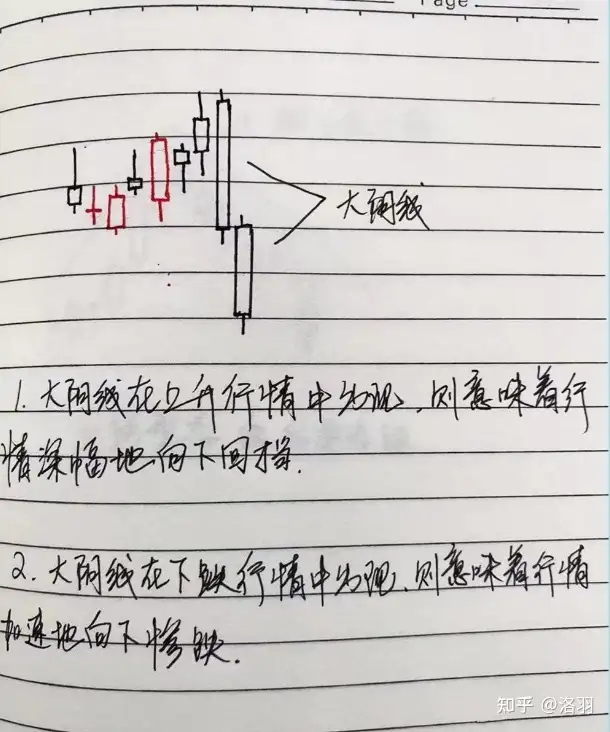 Page
大阴线
1. 大阴线在上升行情中出现,则意味着行
情深幅地向下回档.
2. 大阴线在下跌行情中出现,则意味着行情
加速地向下惨跌.
知乎 @洛羽